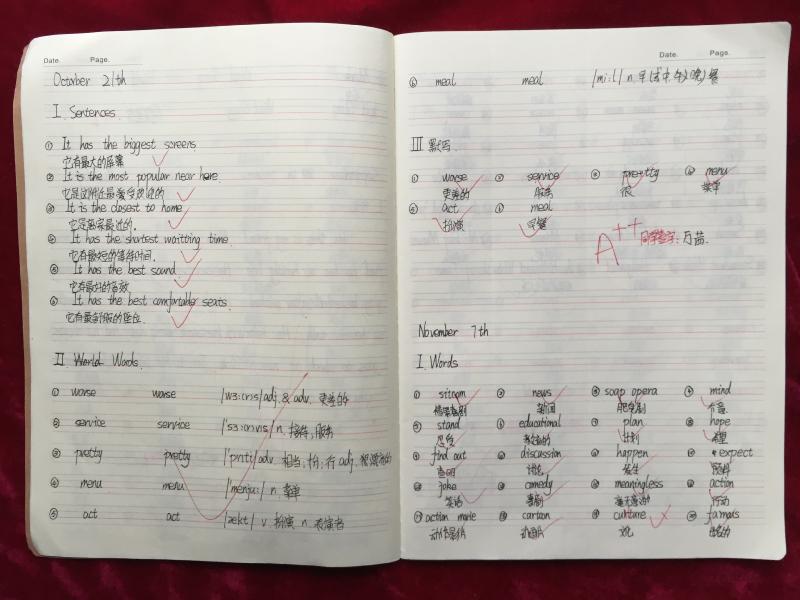 Date. Page.
October 21th
I. Sentences
① It has the biggest screens
它有最大的屏幕
② It is the most popular near here.
它是这附近最受欢迎的
③ It is the closest to home
它是离家最近的.
④ It has the shortest waitting time.
它有最短的等待时间.
⑤ It has the best sound
它有最好的音效
⑥ It has the best comfortable seats
它有最舒服的座位.
II. World Words.
① worse worse adj & adv. 更差的
② service service n. 接待,服务
③ pretty pretty adv 相当;十分;行 adj.
④ menu menu /'menju:/ n 菜单
⑤ act act /ækt/ v. 扮演 n. 表演者
Date. Page.
⑥ meal meal /mi:l/ n. 早(或中、午、晚)餐
III 默写
① worse ② service ③ prettty ④ menu
更差的 服务 很 菜单
⑤ act ⑥ meal
扮演 早餐
A++ 同学签字:
November 7th
I. Words
① sitcom ② news ③ soap opera ④ mind
情景喜剧 新闻 肥皂剧 介意
⑤ stand ⑥ educational ⑦ plan ⑧ hope
忍受 教育的 计划 希望
⑨ find out ⑩ discussion happen expect
查明 讨论 发生 预料
joke comedy meaningless action
笑话 喜剧 毫无意义的 行动
action movie cartoon culture famous
动作影片 动画片 文化 出名的